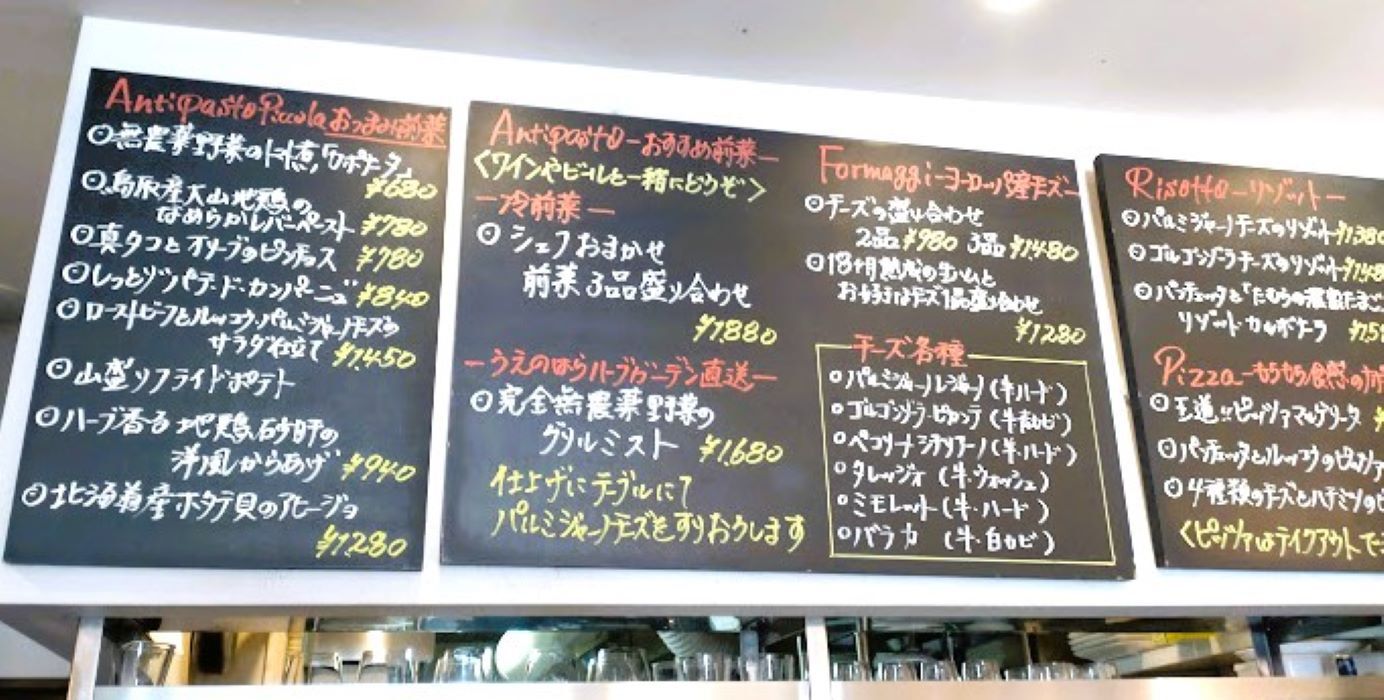 Antipasto Piccola おつまみ前菜
⊙無農薬野菜のトマト煮「カポナータ」
¥680
⊙鳥取産大山地鶏の
なめらかレバーペースト ¥780
⊙真タコとオリーブのピンチョス ¥780
⊙しっとりパテ・ド・カンパーニュ ¥840
⊙ローストビーフとルッコラ、パルミジャーノチーズの
サラダ仕立て ¥1,450
⊙山盛りフライドポテト
⊙ハーブ香る地鶏砂肝の
洋風からあげ ¥940
⊙北海道産ホタテ貝のアヒージョ
¥1280
Antipasto -おすすめ前菜-
<ワインやビールと一緒にどうぞ>
-冷前菜-
⊙シェフおまかせ
前菜3品盛り合わせ
¥1,880
-うえのはらハーブガーデン直送-
⊙完全無農薬野菜の
グリルミスト ¥1,680
仕上げにテーブルにて
パルミジャーノチーズをすりおろします
Formaggi -ヨーロッパ産チーズ-
⊙チーズの盛り合わせ
2品¥980 3品¥1,480
⊙18ヶ月熟成の生ハムと
お好きなチーズ1品盛り合わせ
¥1,280
チーズ各種
○パルミジャーノ・レジャーノ(牛・ハード)
○ゴルゴンゾーラ・ピカンテ(牛・青カビ)
○ペコリーナ・シチリアーノ(羊・ハード)
○タレッジオ(牛・ウォッシュ)
○ミモレット(牛・ハード)
○バラカ(牛・白カビ)
Risotto -リゾット-
⊙パルミジャーノチーズのリゾット ¥1,380
⊙ゴルゴンゾーラチーズのリゾット ¥1,48
⊙パンチェッタと「たむらの温泉たまご
リゾット・カルボナーラ ¥1,58
Pizza -もちもち食感の
⊙王道!!ピッツァマルゲリータ
⊙パンチェッタとルッコラのピッツァ
⊙4種類のチーズとハチミツのピ
<ピッツァはテイクアウトで